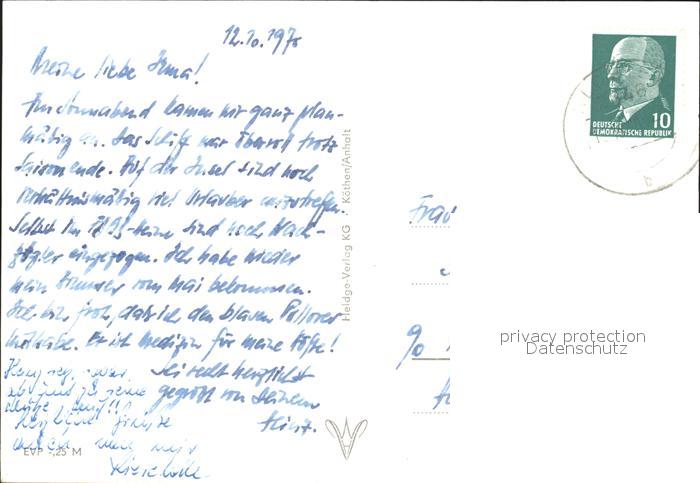 12.10.1970
Meine liebe Irma!
Am Sonnabend kamen wir ganz plan-
mäßig an. Das Schiff war übervoll trotz
Saisonende. Auf der Insel sind noch
verhältnismäßig viel Urlauber anzutreffen.
Selbst im sind noch Nach-
zügler eingezogen. Ich habe wieder
mein Zimmer vom Mai bekommen.
Ich bin froh, daß ich den blauen Pullover
mithabe. Er ist Medizin für meine
Sei recht herzlichst
gegrüßt von Deinem
Heinz.
ab und zu seine
Herzliche Grüße
auch
Lieselotte
EVP -,25 M
Heldge-Verlag KG · Köthen/Anhalt
10
DEUTSCHE
DEMOKRATISCHE REPUBLIK
Frau
90
privacy protection
Datenschutz